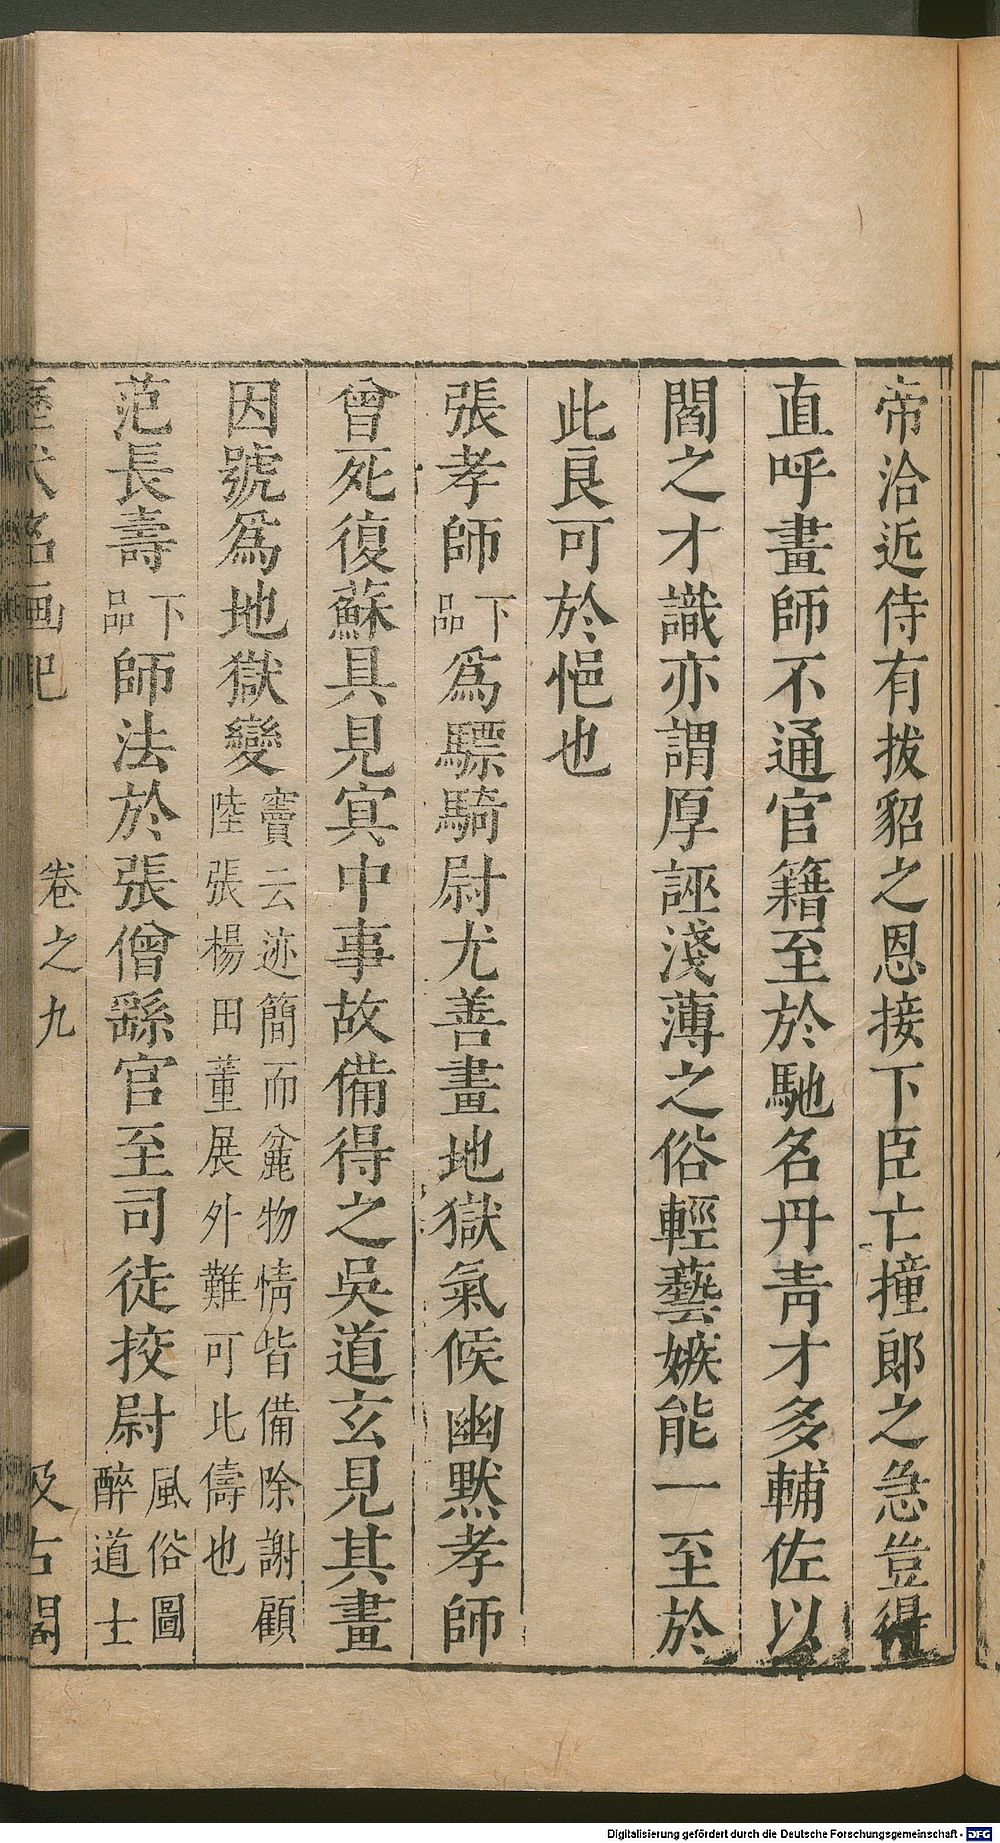 帝洽近侍有拔貂之恩接下臣亡撞郎之急豈得
直呼畫師不通官籍至於馳名丹靑才多輔佐以
閻之才識亦謂厚誣淺薄之俗輕藝嫉能一至於
此良可於悒也
張孝師下品爲驃騎尉尤善畫地獄氣候幽默孝師
曾死復蘇具見冥中事故備得之吳道玄見其畫
因號爲地獄變竇云迹簡而麁物情皆備除謝顧陸張楊田董展外難可比儔也
范長壽下品師法於張僧繇官至司徒挍尉風俗圖醉道士
歷代名画記 卷之九 汲古閣
Digitalisierung gefördert durch die Deutsche Forschungsgemeinschaft - DFG